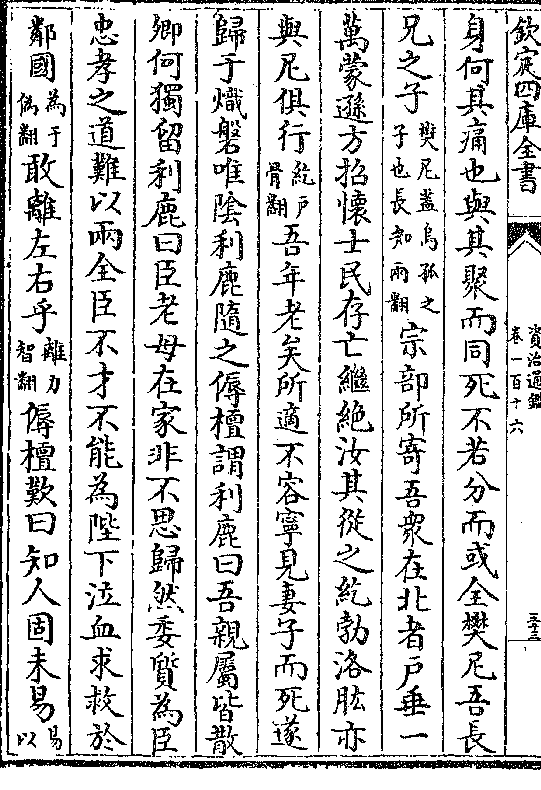 欽定四庫全書
資治通鑑
卷一百十六
三十三
身何其痛也與其聚而同死不若分而或全樊尼吾長
兄之子樊尼蓋烏孤之子也長知兩翻宗部所寄吾衆在北者戶垂一
萬蒙遜方招懷士民存亡繼絶汝其從之紇勃洛肱亦
與尼俱行紇戶骨翻吾年老矣所適不容寧見妻子而死遂
歸于熾磐唯陰利鹿隨之傉檀謂利鹿曰吾親屬皆散
卿何獨留利鹿曰臣老母在家非不思歸然委質為臣
忠孝之道難以兩全臣不才不能為陛下泣血求救於
鄰國為于偽翻敢離左右乎離力智翻傉檀歎曰知人固未易易以